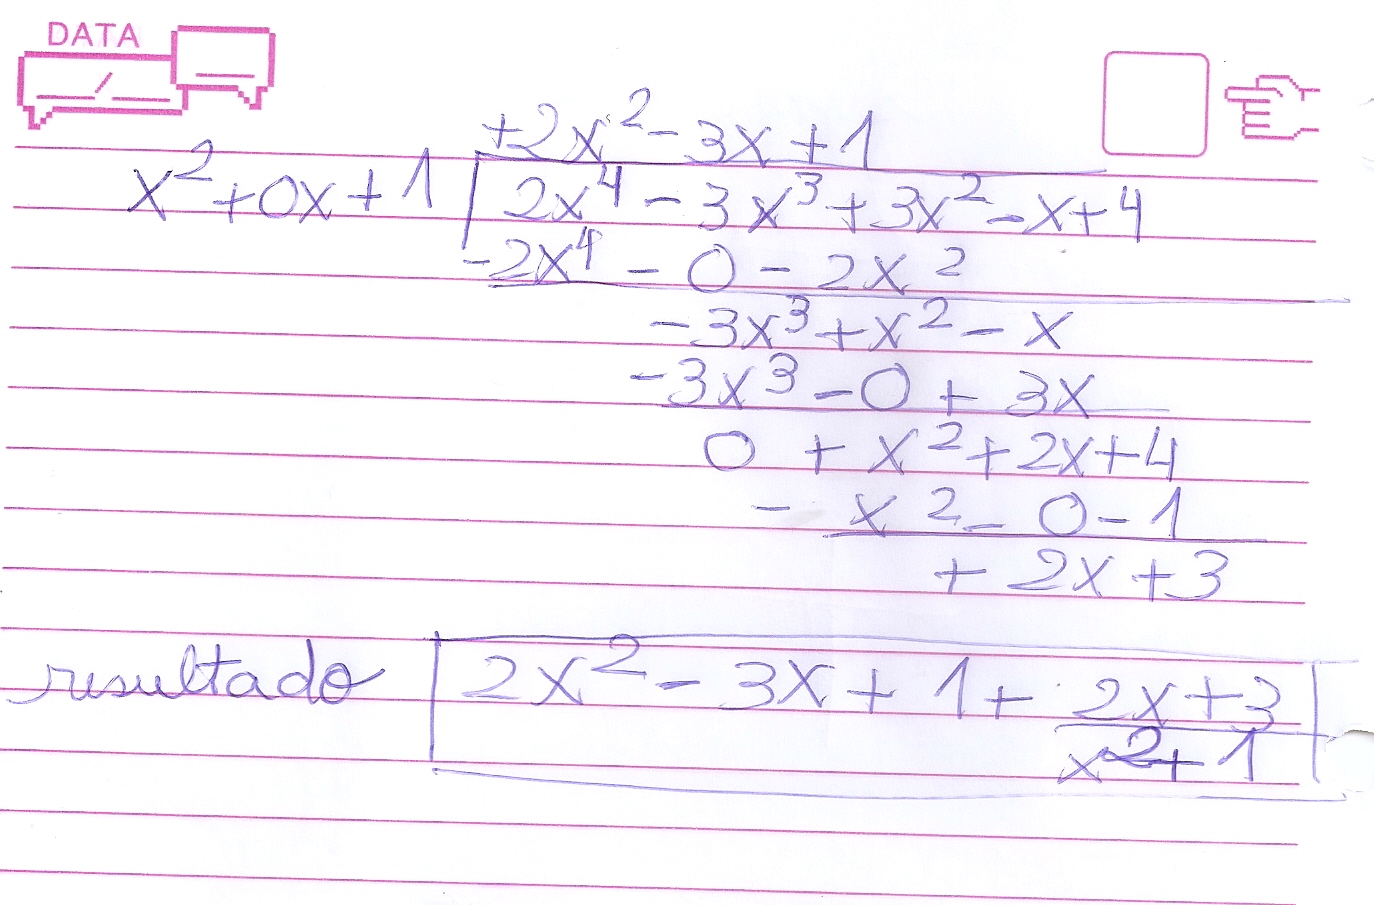 DATA
+2x² - 3x + 1
x² + 0x + 1 | 2x⁴ - 3x³ + 3x² - x + 4
-2x⁴ - 0 - 2x²
-3x³ + x² - x
-3x³ - 0 + 3x
0 + x² + 2x + 4
- x² - 0 - 1
+ 2x + 3
resultado | 2x² - 3x + 1 + 2x + 3 |
x² + 1